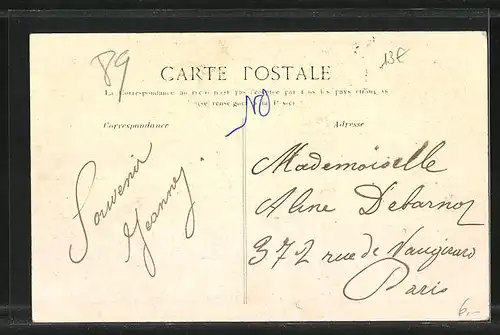 89
13€
CARTE POSTALE
La Correspondance au recto n'est pas acceptée par tous les pays étrangers
Correspondance
Adresse
Souvenir
Jeanne
Mademoiselle
Aline Debarnoz
372 rue de Vaugirard
Paris
6,-